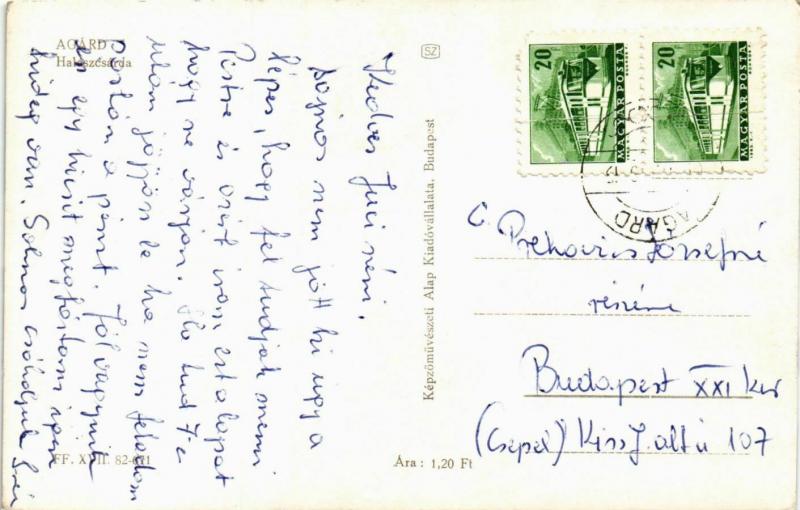 AGÁRD
Halászcsárda
Kedves Juci néni,
Sajnos nem jött ki úgy a
lépes, hogy fel tudjak menni
Pistre és azért írom ezt a lapot
hogy ne várjon. Ha tud 7-e
után jöjjön le ha nem feladom
postán a pénzt. Jól vagyunk
én egy kicsit megfáztam igen
hideg van. Sokszor csókoljuk
FF. XVII. 82-
Ára : 1,20 Ft
SZ
Képzőművészeti Alap Kiadóvállalata, Budapest
20
MAGYAR POSTA
20
MAGYAR POSTA
AGÁRD
Prekovics Józsefné
részére
Budapest XXI ker
(Csepel) Kiss J. altú 107